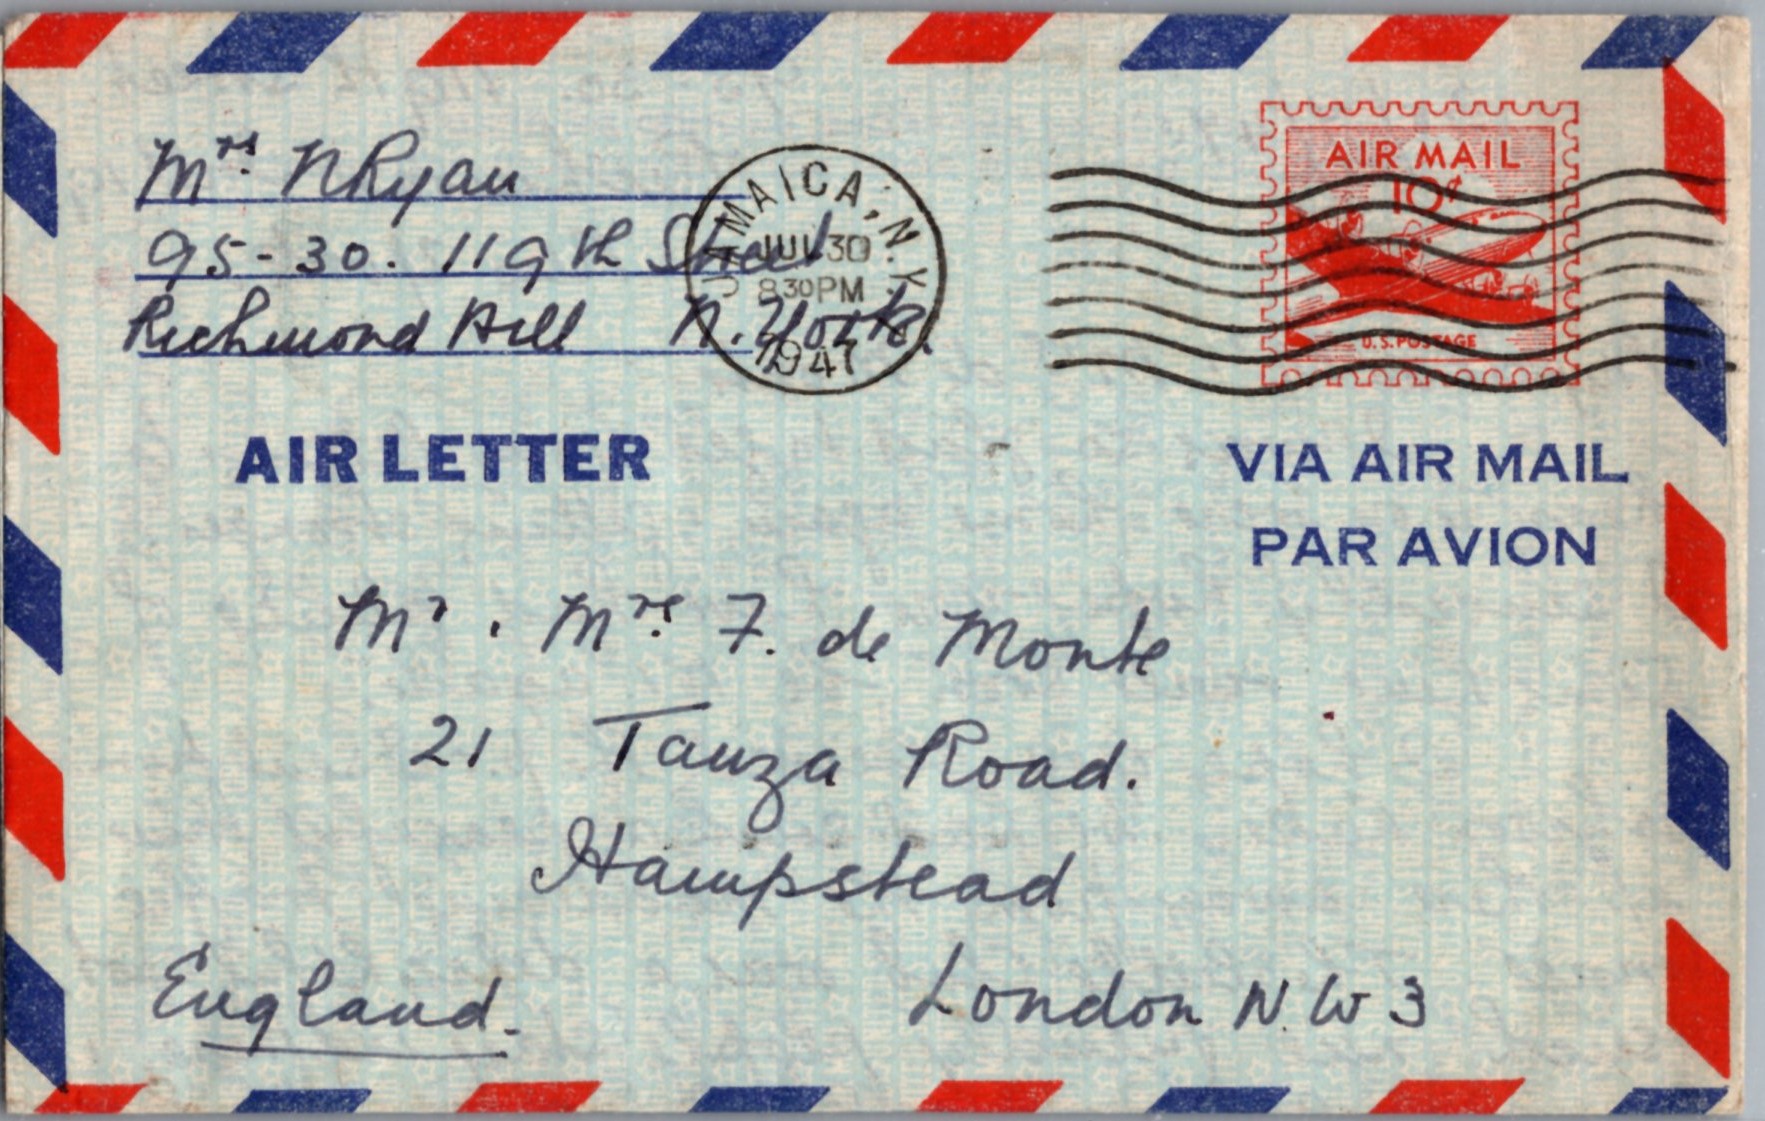 Mrs. N Ryan
95-30. 119th Street
Richmond Hill N. York.
JAMAICA, N.Y.
JUL 30
8 30 PM
1947
AIR MAIL
10¢
U.S. POSTAGE
AIR LETTER
VIA AIR MAIL
PAR AVION
Mr. Mrs. F. de Monte
21 Tanza Road.
Hampstead
London N.W 3
England.